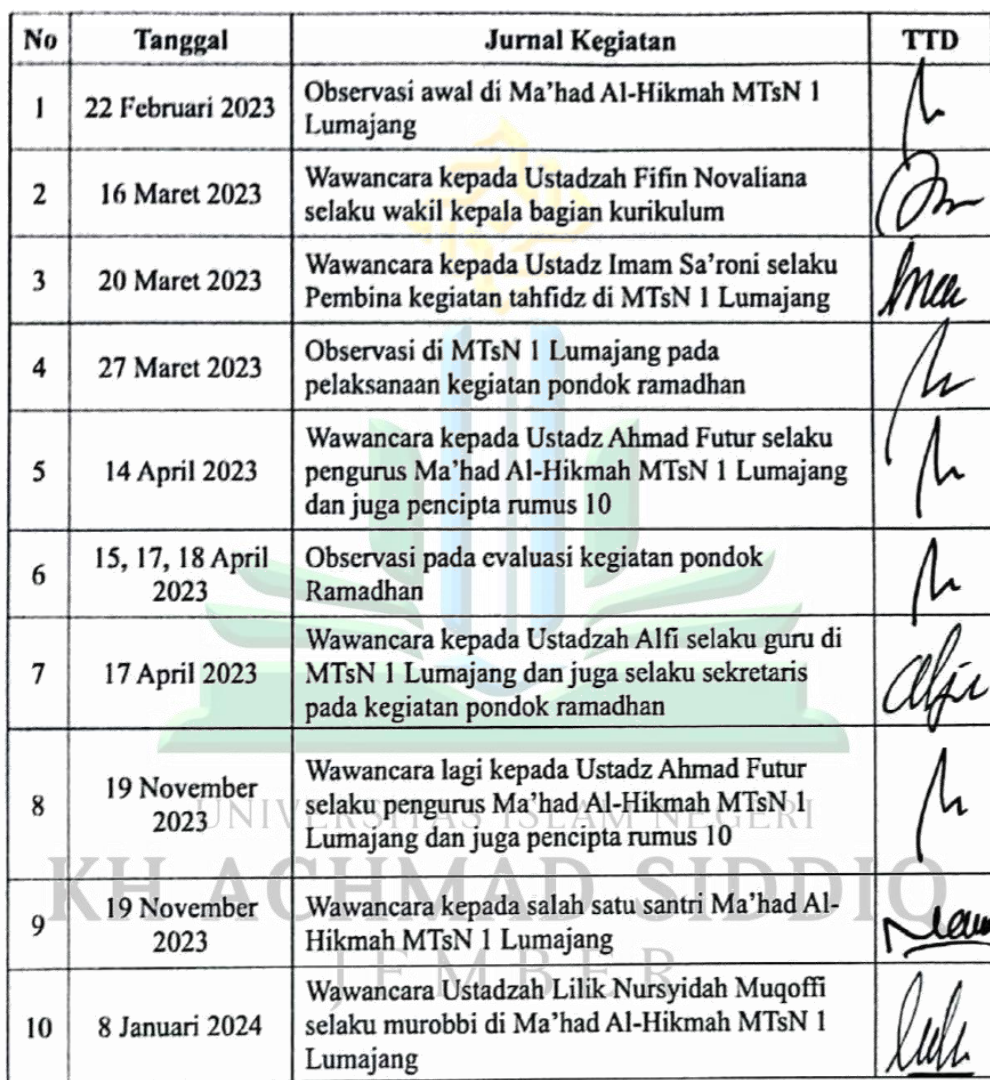 No Tanggal Jurnal Kegiatan TTD
1 22 Februari 2023 Observasi awal di Ma'had Al-Hikmah MTsN 1
Lumajang
2 16 Maret 2023 Wawancara kepada Ustadzah Fifin Novaliana
selaku wakil kepala bagian kurikulum
3 20 Maret 2023 Wawancara kepada Ustadz Imam Sa'roni selaku
Pembina kegiatan tahfidz di MTsN 1 Lumajang
4 27 Maret 2023 Observasi di MTsN 1 Lumajang pada
pelaksanaan kegiatan pondok ramadhan
5 14 April 2023 Wawancara kepada Ustadz Ahmad Futur selaku
pengurus Ma'had Al-Hikmah MTsN 1 Lumajang
dan juga pencipta rumus 10
6 15, 17, 18 April
2023
Observasi pada evaluasi kegiatan pondok
Ramadhan
7 17 April 2023 Wawancara kepada Ustadzah Alfi selaku guru di
MTsN 1 Lumajang dan juga selaku sekretaris
pada kegiatan pondok ramadhan
Alfi
8 19 November
2023
Wawancara lagi kepada Ustadz Ahmad Futur
selaku pengurus Ma'had Al-Hikmah MTsN 1
Lumajang dan juga pencipta rumus 10
UNIVERSITAS ISLAM NEGERI
KH ACHMAD SIDDIQ
JEMBER
9 19 November
2023
Wawancara kepada salah satu santri Ma'had Al-
Hikmah MTsN 1 Lumajang
10 8 Januari 2024 Wawancara Ustadzah Lilik Nursyidah Muqoffi
selaku murobbi di Ma'had Al-Hikmah MTsN 1
Lumajang